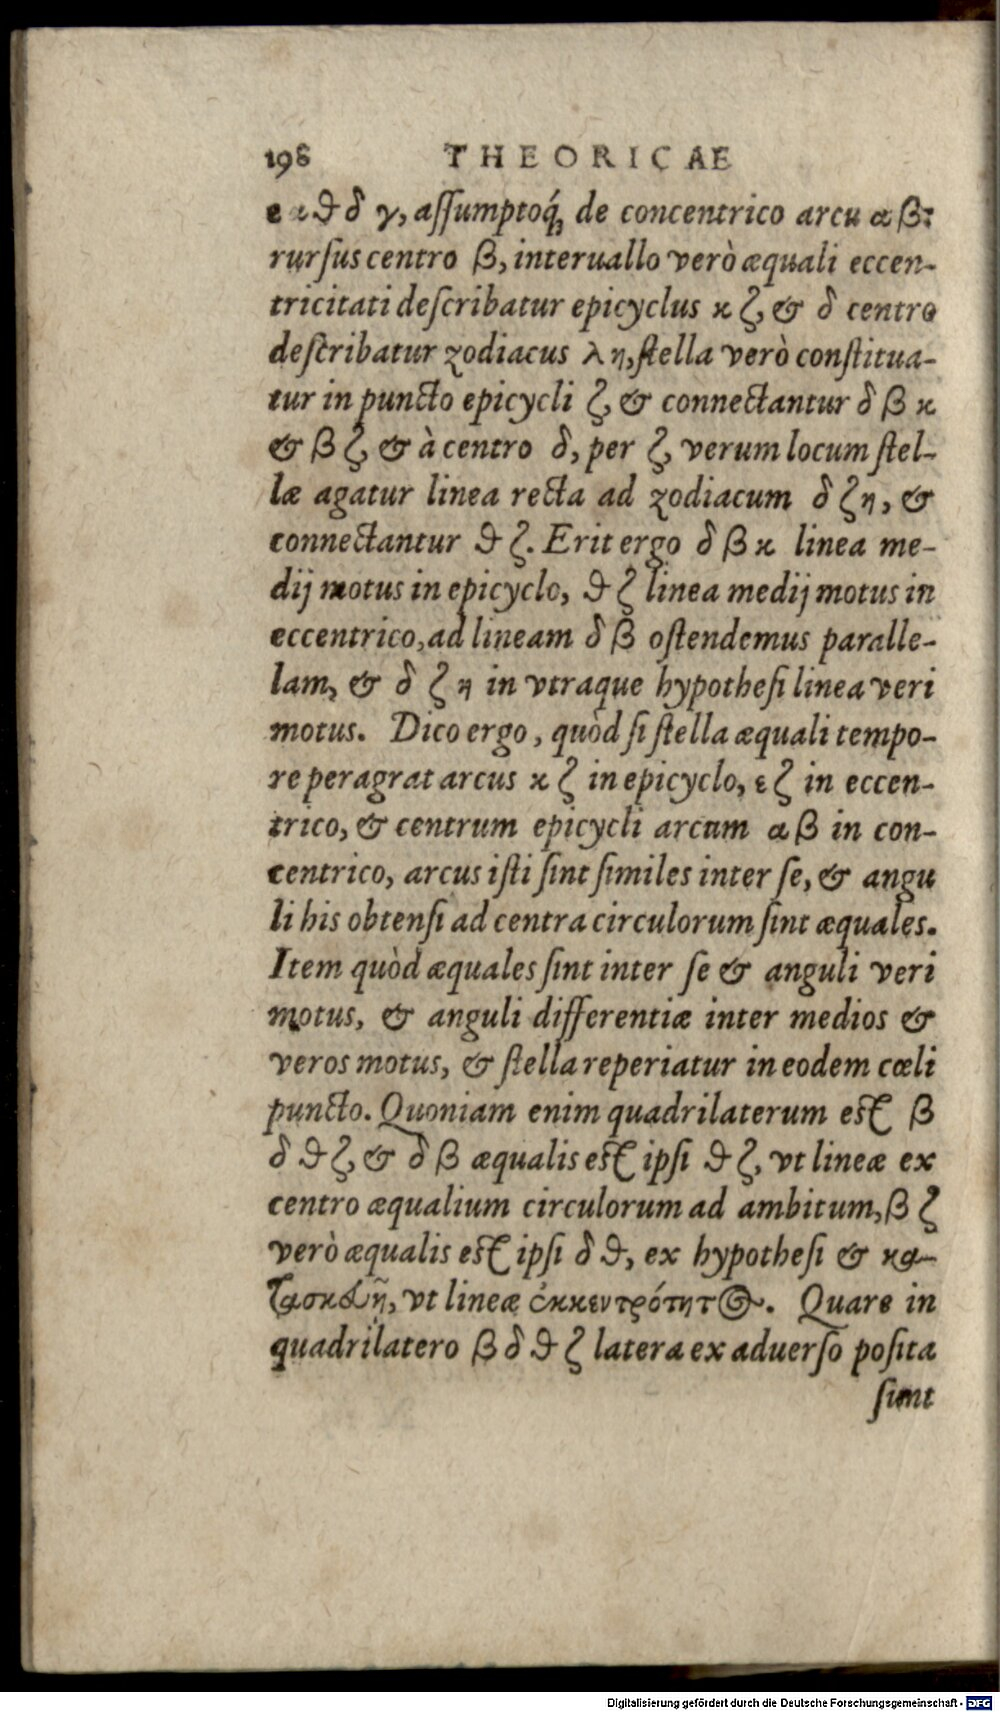 198 THEORICAE
ε α ϑ δ γ, aſſumptoq́; de concentrico arcu α β:
rurſus centro β, interuallo verò æquali eccen-
tricitati deſcribatur epicyclus κ ζ, & δ centro
deſcribatur zodiacus λ η, ſtella verò conſtitua-
tur in puncto epicycli ζ, & connectantur δ β κ
& β ζ, & à centro δ, per ζ, verum locum ſtel-
læ agatur linea recta ad zodiacum δ ζ η, &
connectantur ϑ ζ. Erit ergo δ β κ linea me-
dij motus in epicyclo, ϑ ζ linea medij motus in
eccentrico, ad lineam δ β oſtendemus paralle-
lam, & δ ζ η in vtraque hypotheſi linea veri
motus. Dico ergo, quòd ſi ſtella æquali tempo-
re peragrat arcus κ ζ in epicyclo, ε ζ in eccen-
trico, & centrum epicycli arcum α β in con-
centrico, arcus iſti ſint ſimiles inter ſe, & angu
li his obtenſi ad centra circulorum ſint æquales.
Item quòd æquales ſint inter ſe & anguli veri
motus, & anguli differentiæ inter medios &
veros motus, & ſtella reperiatur in eodem cœli
puncto. Quoniam enim quadrilaterum eſt β
δ ϑ ζ, & δ β æqualis eſt ipſi ϑ ζ, vt lineæ ex
centro æqualium circulorum ad ambitum, β ζ
verò æqualis eſt ipſi δ ϑ, ex hypotheſi & κα-
τασκευῇ, vt lineæ ἐκκεντρότητος. Quare in
quadrilatero β δ ϑ ζ latera ex aduerſo poſita
ſunt
Digitalisierung gefördert durch die Deutsche Forschungsgemeinschaft - DFG